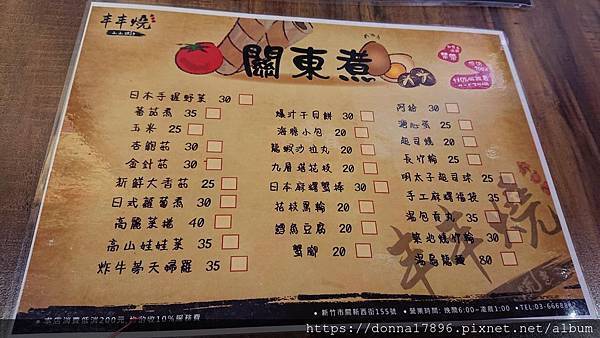 丰丰燒
關東煮
日本手握野菜 30
蕃茄煮 35
玉米 25
杏鮑菇 30
金針菇 30
新鮮大香菇 25
日式蘿蔔煮 30
高麗菜捲 40
高山娃娃菜 35
炸牛蒡天婦羅 35
爆汁干貝餅 30
海膽小包 20
龍蝦沙拉丸 20
九層塔花枝 20
日本麻糬蟹棒 30
花枝黑輪 20
鱈魚豆腐 20
蟹腳 20
阿給 30
溏心蛋 25
起司燒 20
長竹輪 25
明太子起司球 25
手工麻糬福袋 35
湯包貢丸 35
築地燒竹輪 30
湯烏龍麵 80
本店消費低消200元 均酌收10%服務費
新竹市關新西街155號
營業時間: 傍晚6:00-凌晨1:00
TEL:03-6668882
丰丰燒
https://donna17896.pixnet.net/album